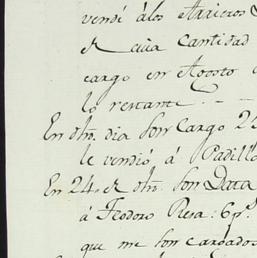 vendí álos Arrieros
de cuia Cantidad
cargo en Agosto
lo restante. - -
En dho. dia son Cargo 25
le vendió, á Padill
En 24. de dho. son Data
á Teodoro Resa: 6 p.
que me son cargados